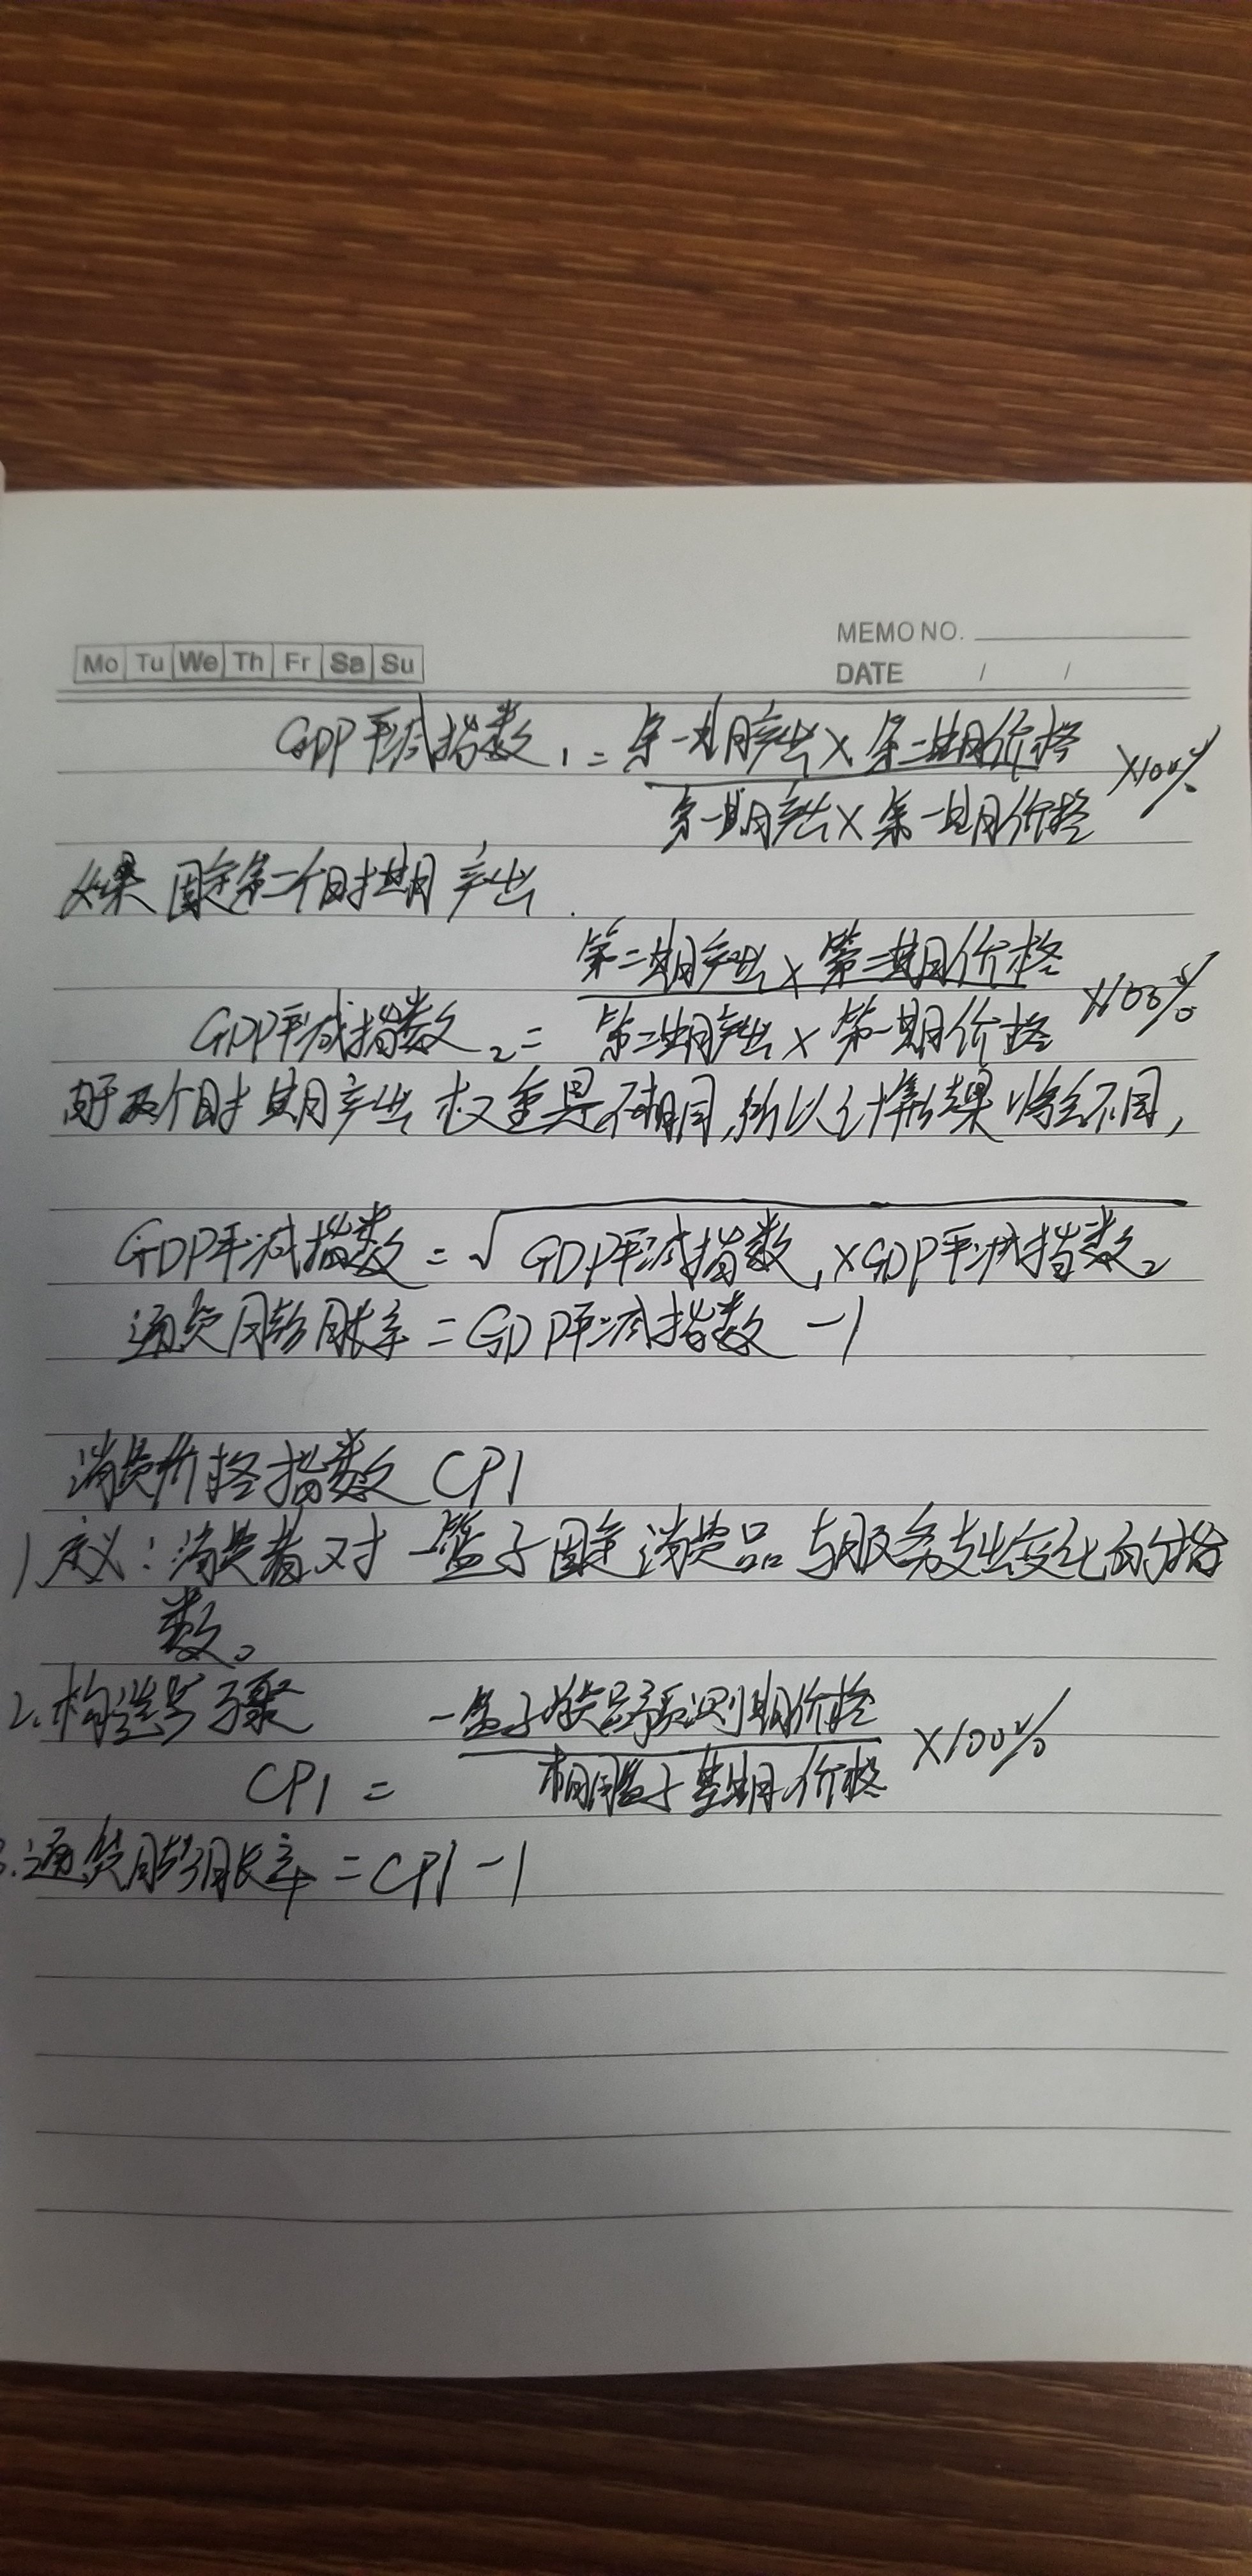 MEMO NO.
Mo Tu We Th Fr Sa Su
DATE / /
GDP平减指数₁ = 第一期产出×第二期价格 / 第一期产出×第一期价格 ×100%
如果固定第二个时期产出.
GDP平减指数₂ = 第二期产出×第二期价格 / 第二期产出×第一期价格 ×100%
由于两个时期产出权重是不相同,所以计算结果将会不同,
GDP平减指数 = √GDP平减指数₁×GDP平减指数₂
通货膨胀率 = GDP平减指数 -1
消费价格指数 CPI
1.定义:消费者对一篮子固定消费品与服务支出变化的指
数。
2.构造步骤
CPI = 一篮子 预测期价格 / 相同篮子基期价格 ×100%
3.通货膨胀率 = CPI -1